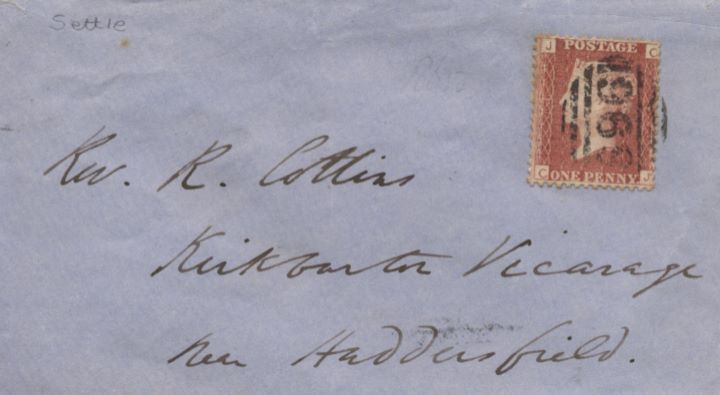 Settle
J POSTAGE C
C ONE PENNY J
Rev. R. Collins
Kirkburton Vicarage
near Huddersfield.